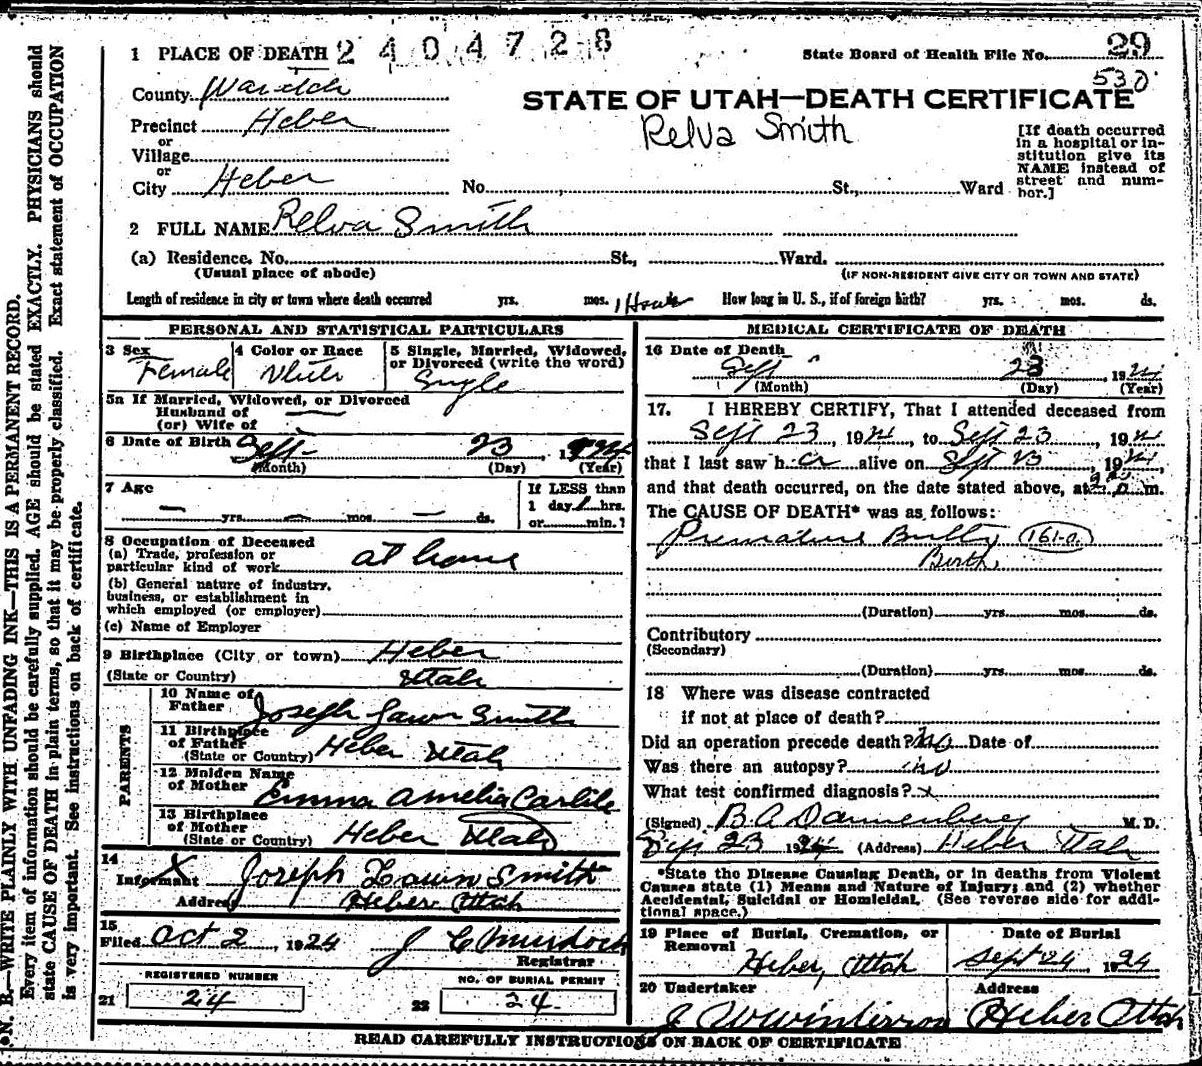 1 PLACE OF DEATH 2404728
State Board of Health File No. 29
530
County
STATE OF UTAH—DEATH CERTIFICATE
Precinct Heber
Relva Smith
or
Village
or
City Heber No. St., Ward
[If death occurred
in a hospital or in-
stitution give its
NAME instead of
street and num-
ber.]
2 FULL NAME Relva Smith
(a) Residence. No. St., Ward.
(Usual place of abode)
(IF NON-RESIDENT GIVE CITY OR TOWN AND STATE)
Length of residence in city or town where death occurred yrs. mos. 1 How long in U. S., if of foreign birth? yrs. mos. ds.
PERSONAL AND STATISTICAL PARTICULARS
3 Sex
Female
4 Color or Race
White
5 Single, Married, Widowed,
or Divorced (write the word)
Single
5a If Married, Widowed, or Divorced
Husband of —
(or) Wife of
6 Date of Birth Sept 23, 1924
(Month) (Day) (Year)
7 Age
— yrs. — mos. — ds.
If LESS than
1 day 1 hrs.
or min.?
8 Occupation of Deceased
(a) Trade, profession or
particular kind of work at home
(b) General nature of industry,
business, or establishment in
which employed (or employer)
(c) Name of Employer
9 Birthplace (City or town) Heber
(State or Country) Utah
PARENTS
10 Name of
Father Joseph Smith
11 Birthplace
of Father
(State or Country) Heber Utah
12 Maiden Name
of Mother Emma Amelia Carlile
13 Birthplace
of Mother
(State or Country) Heber Utah
14
Informant X Joseph Smith
Address Heber Utah
15
Filed Oct 2, 1924 J C Murdoch
Registrar
REGISTERED NUMBER
21 24
NO. OF BURIAL PERMIT
22 24
MEDICAL CERTIFICATE OF DEATH
16 Date of Death
Sept 23, 1924
(Month) (Day) (Year)
17. I HEREBY CERTIFY, That I attended deceased from
Sept 23, 1924, to Sept 23, 1924
that I last saw h er alive on Sept 23, 1924,
and that death occurred, on the date stated above, at m.
The CAUSE OF DEATH* was as follows:
Premature 161-a
Birth
(Duration) yrs. mos. ds.
Contributory
(Secondary)
(Duration) yrs. mos. ds.
18 Where was disease contracted
if not at place of death?
Did an operation precede death? No Date of
Was there an autopsy? no
What test confirmed diagnosis? x
(Signed) B A Dannenberg M. D.
Sep 23 1924 (Address) Heber Utah
*State the Disease Causing Death, or in deaths from Violent
Causes state (1) Means and Nature of Injury; and (2) whether
Accidental, Suicidal or Homicidal. (See reverse side for addi-
tional space.)
19 Place of Burial, Cremation, or
Removal
Heber, Utah
Date of Burial
Sept 24, 1924
20 Undertaker
J W Winterrose
Address
Heber Utah
READ CAREFULLY INSTRUCTIONS ON BACK OF CERTIFICATE
N. B.—WRITE PLAINLY WITH UNFADING INK—THIS IS A PERMANENT RECORD.
Every item of information should be carefully supplied. AGE should be stated EXACTLY. PHYSICIANS should
state CAUSE OF DEATH in plain terms, so that it may be properly classified. Exact statement of OCCUPATION
is very important. See instructions on back of certificate.